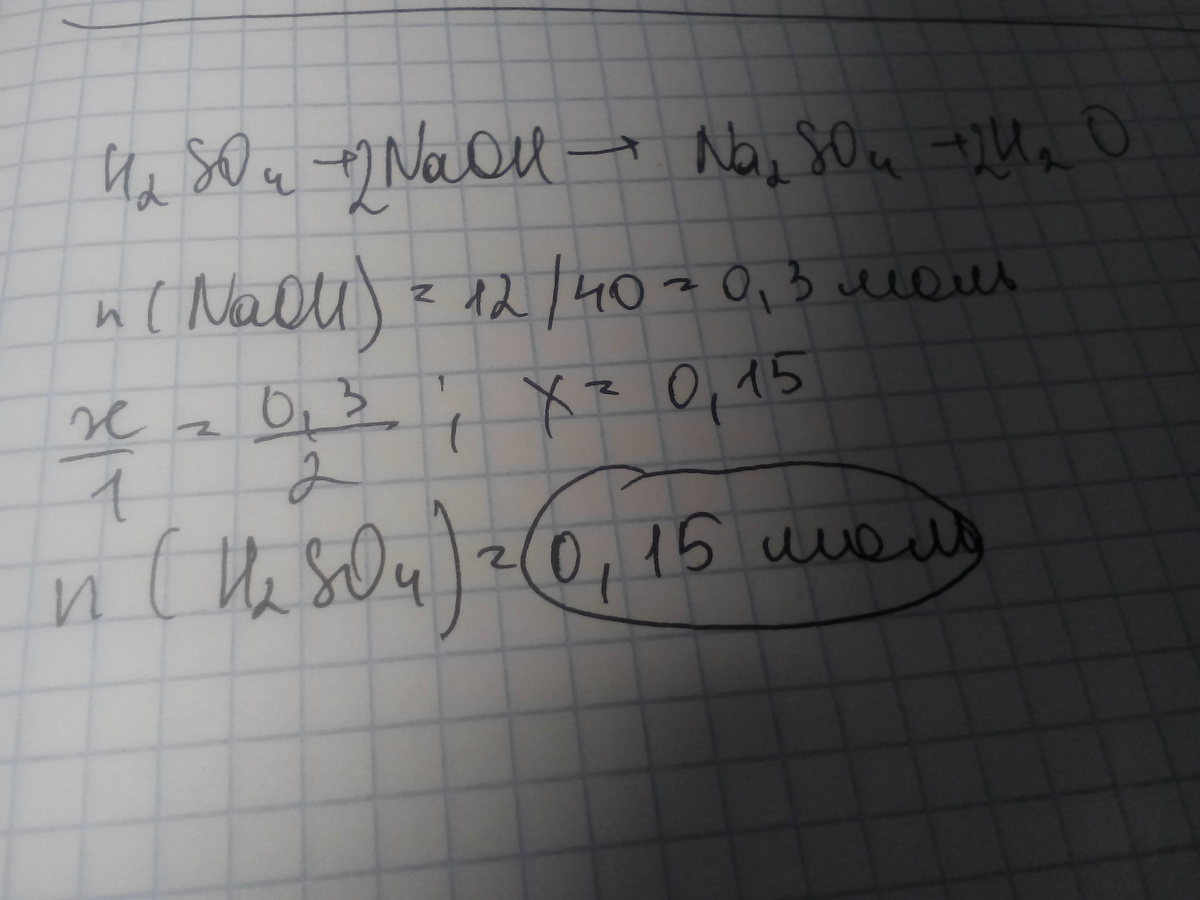 H₂SO₄ + 2NaOH → Na₂SO₄ + 2H₂O
n(NaOH) = 12/40 = 0,3 моль
x/1 = 0,3/2 ; x = 0,15
n(H₂SO₄) = 0,15 моль